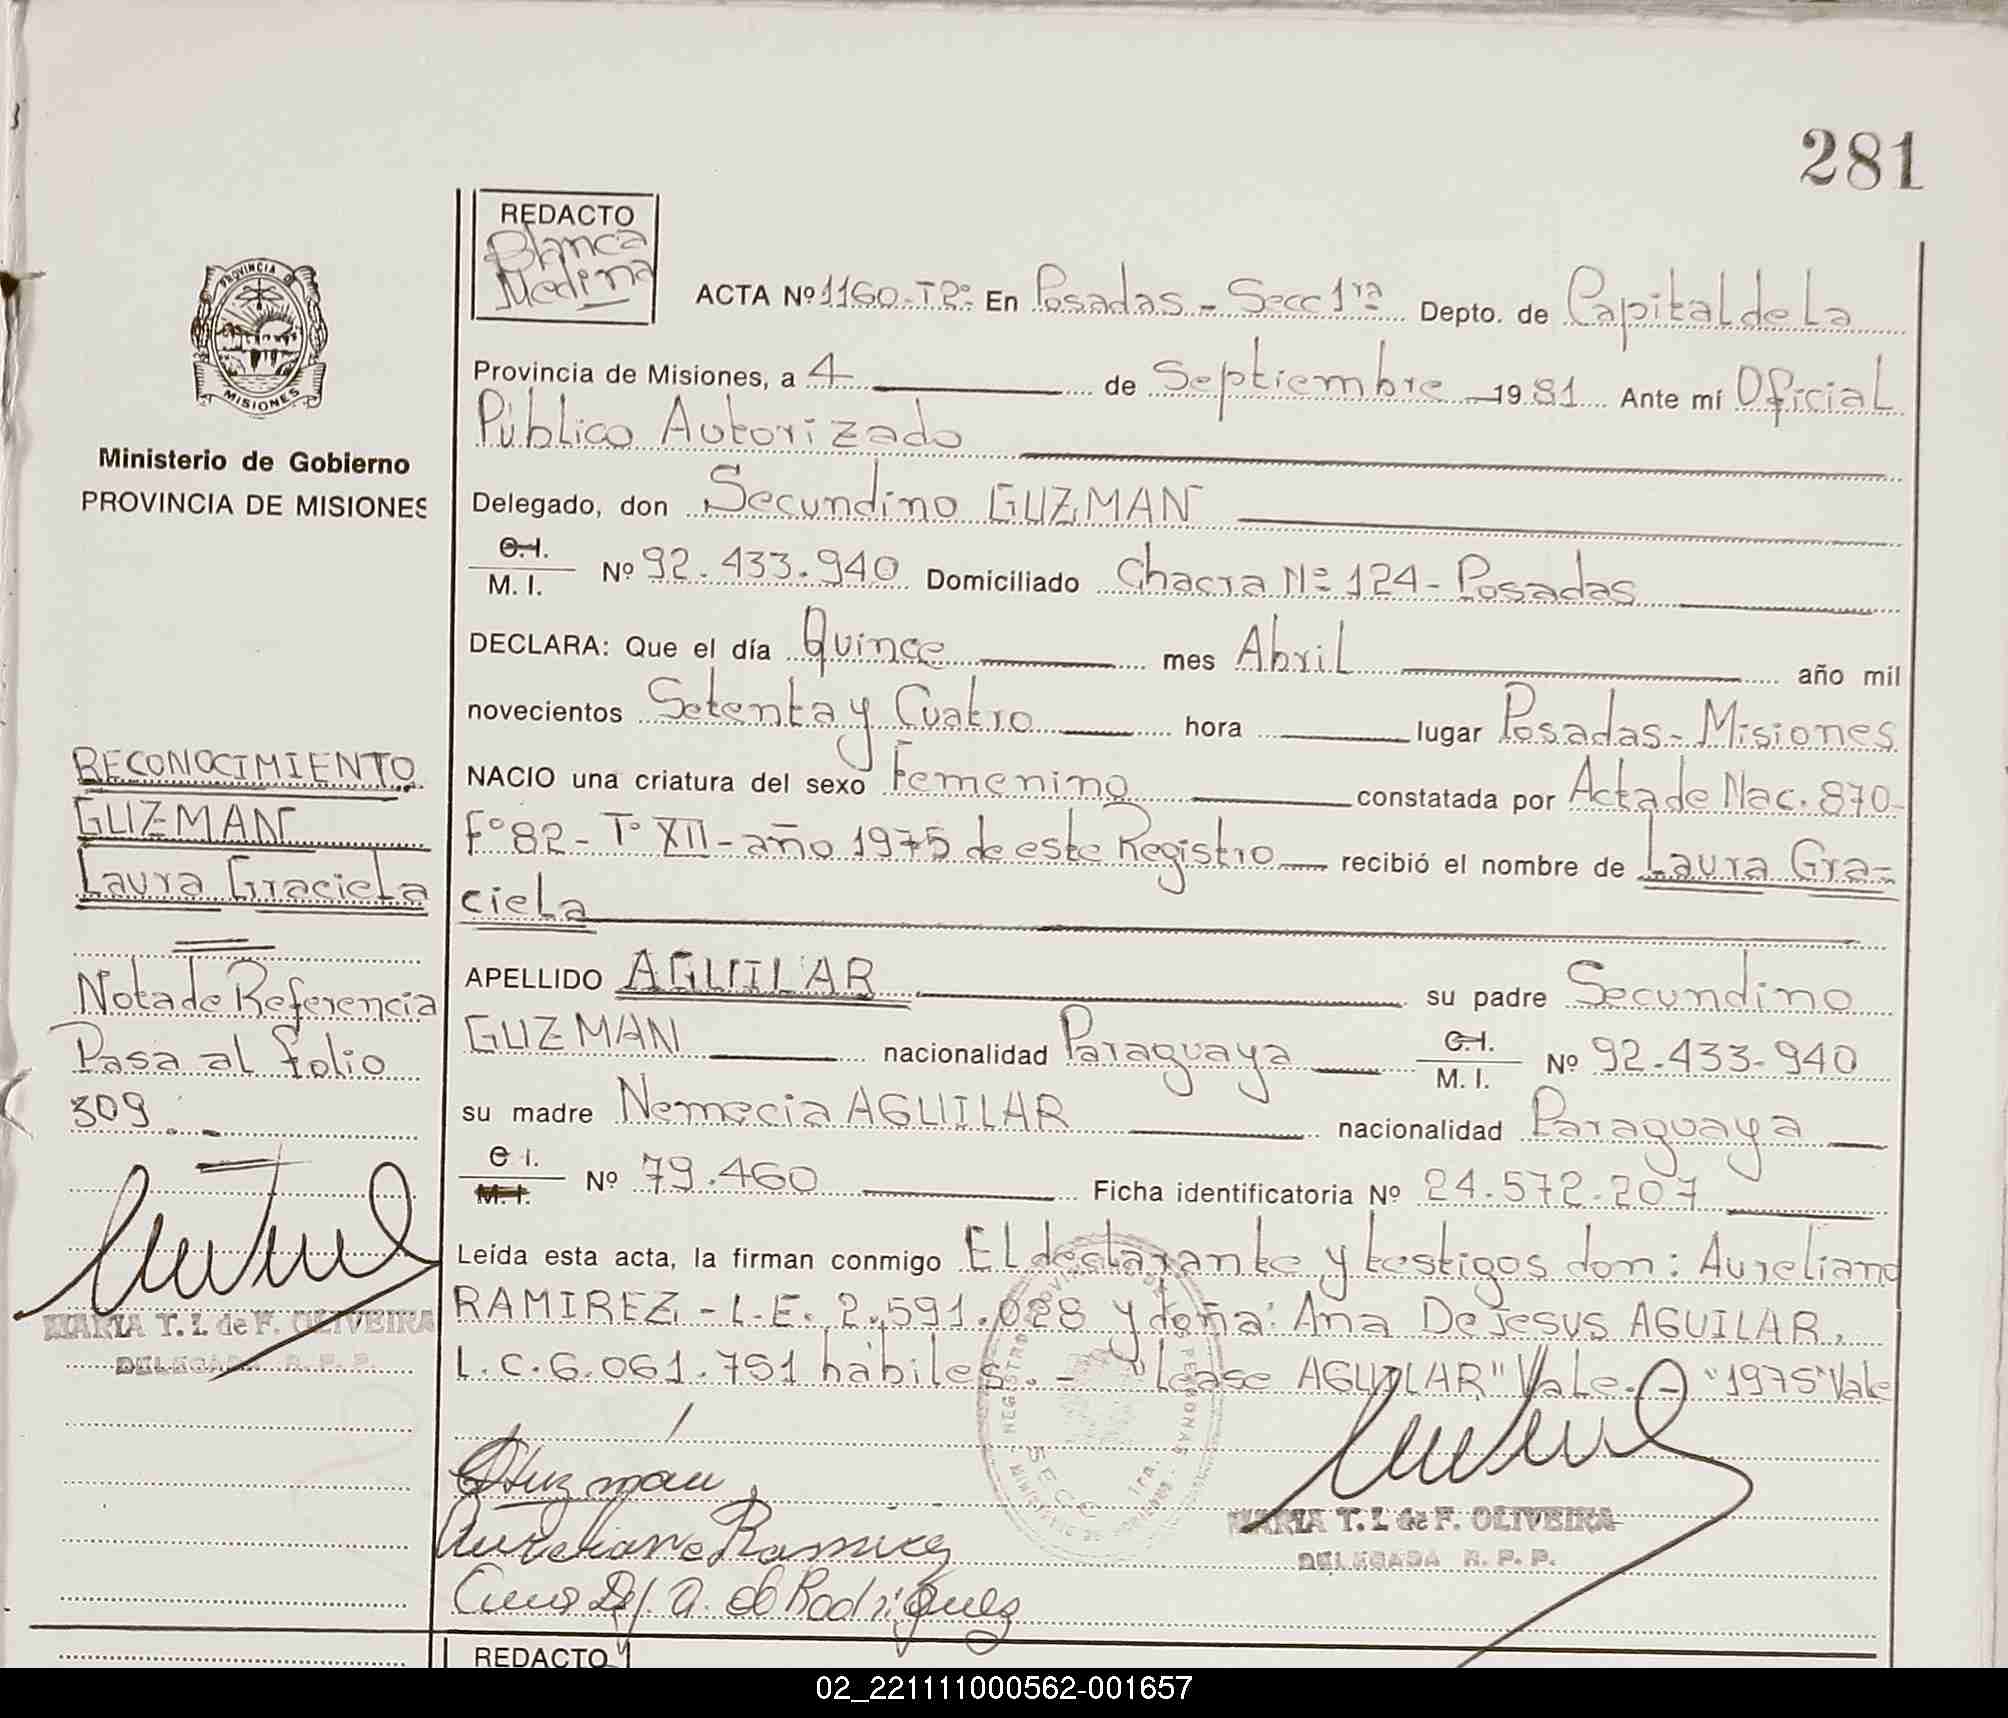 281
REDACTO
Blanca
Medina
PROVINCIA DE
MISIONES
Ministerio de Gobierno
PROVINCIA DE MISIONES
RECONOCIMIENTO
GUZMAN
Laura Graciela
Nota de Referencia
Pasa al folio
309.-
MARIA T. I. de F. OLIVEIRA
DELEGADA R. P. P.
ACTA Nº 1160-Tº: En Posadas - Secc 1ra Depto. de Capital de La
Provincia de Misiones, a 4 de Septiembre 1981 Ante mí Oficial
Público Autorizado
Delegado, don Secundino GUZMAN
C.I.
M. I. Nº 92.433.940 Domiciliado Chacra Nº 124 - Posadas
DECLARA: Que el día Quince mes Abril año mil
novecientos Setenta y Cuatro hora lugar Posadas - Misiones
NACIO una criatura del sexo Femenino constatada por Acta de Nac. 870-
Fº 82 - Tº XII - año 1975 de este Registro recibió el nombre de Laura Gra-
ciela
APELLIDO AGUILAR su padre Secundino
GUZMAN nacionalidad Paraguaya C.I. M. I. Nº 92.433-940
su madre Nemecia AGUILAR nacionalidad Paraguaya
C.I.
M.I. Nº 79.460 Ficha identificatoria Nº 24.572.207
Leída esta acta, la firman conmigo El declarante y testigos don: Aureliano
RAMIREZ - L.E. 2.591.028 y doña: Ana De Jesus AGUILAR,
L.C. 6.061.751 hábiles. - "léase AGUILAR" Vale. - "1975" Vale
SGuzmán
Aureliano Ramirez
Ana D J. A. de Rodriguez
SECC 1ra.
MARIA T. I. de F. OLIVEIRA
DELEGADA R. P. P.
REDACTO
02_221111000562-001657